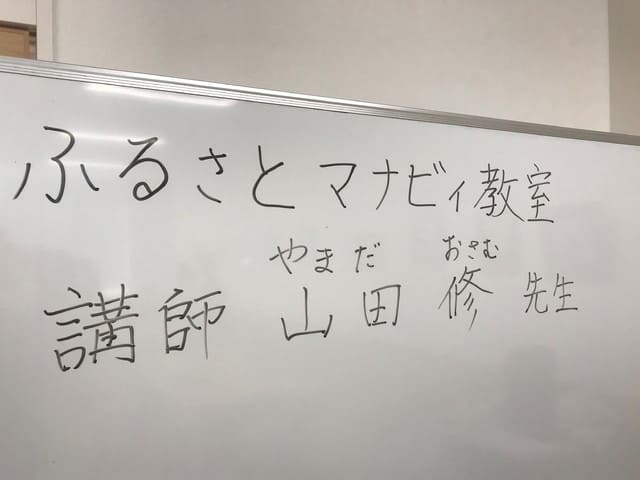 ふるさとマナビィ教室
やまだ おさむ
講師 山田 修 先生